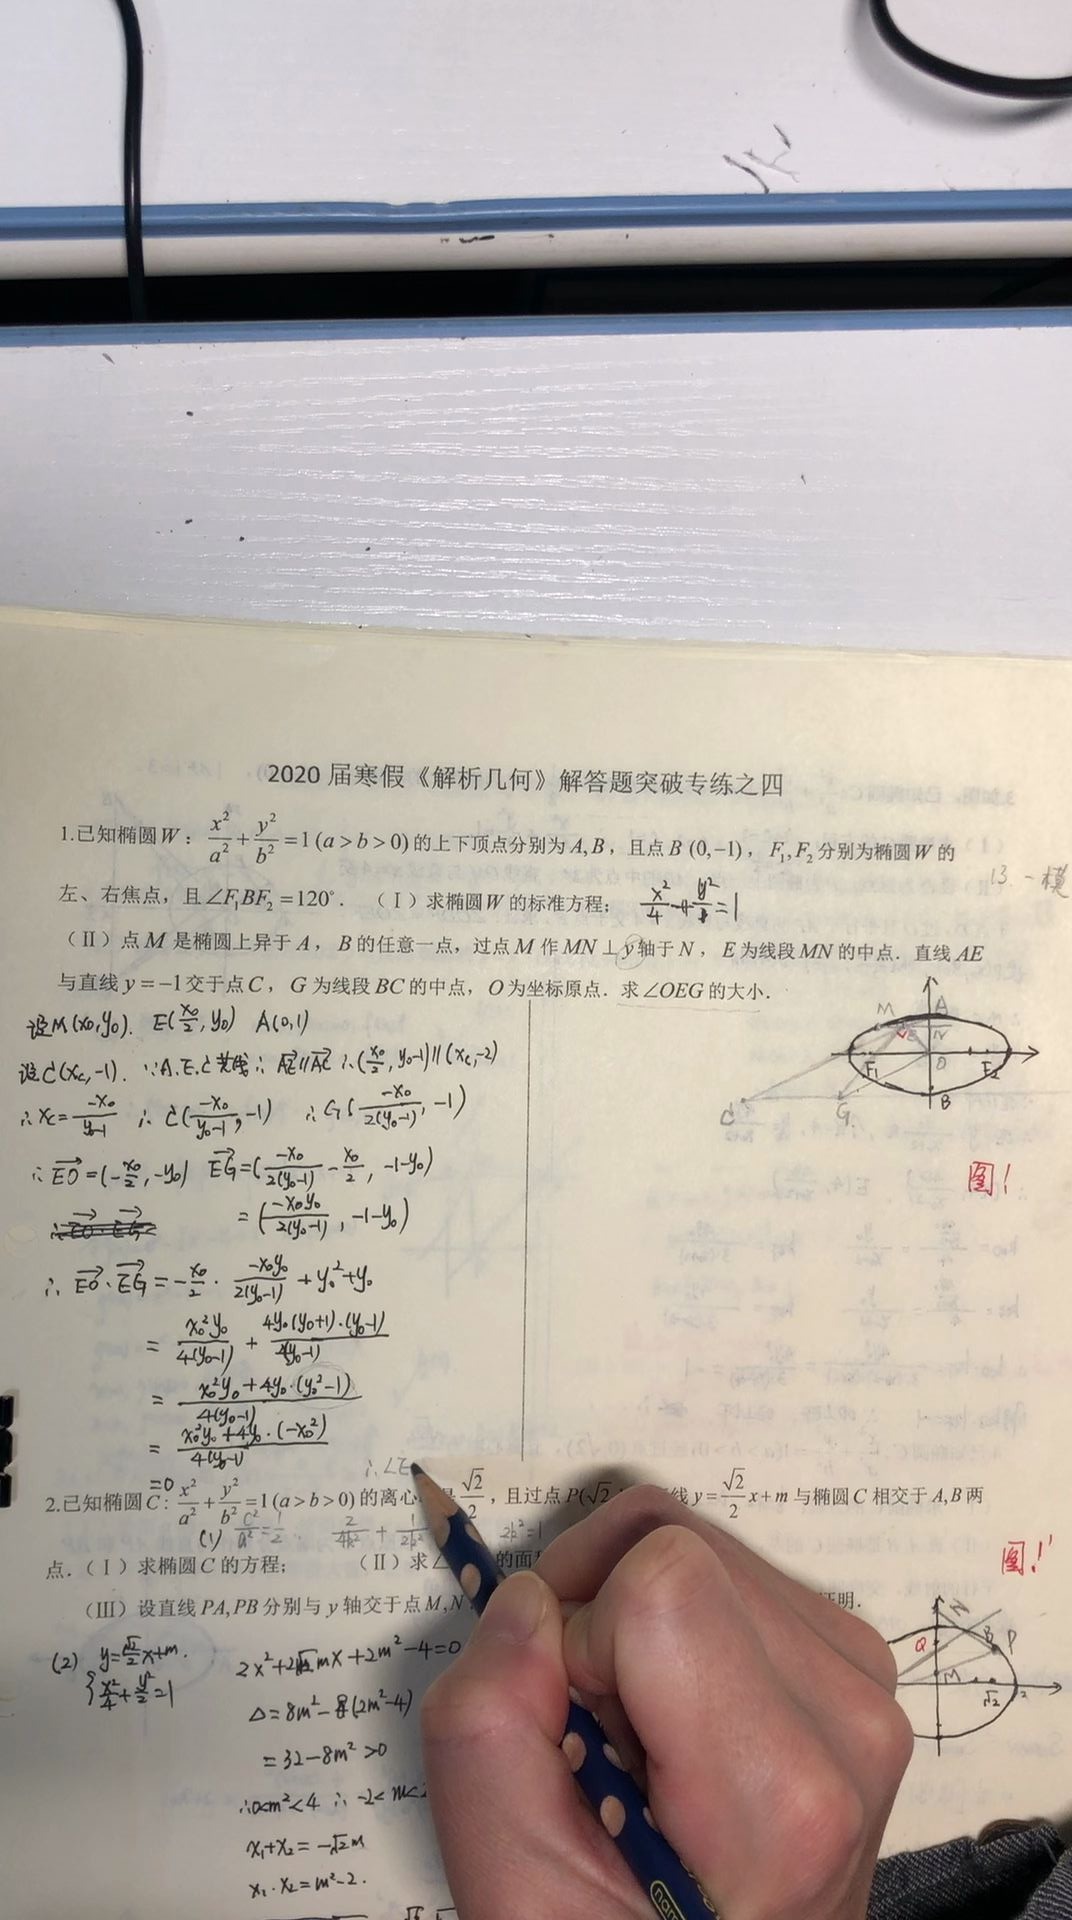 2020 届寒假《解析几何》解答题突破专练之四
1.已知椭圆W：x²/a²+y²/b²=1(a>b>0)的上下顶点分别为A,B，且点B(0,−1)，F₁,F₂分别为椭圆W的
13.一模
左、右焦点，且∠F₁BF₂=120°．（Ⅰ）求椭圆W的标准方程； x²/4+y²/1=1
（Ⅱ）点M是椭圆上异于A，B的任意一点，过点M作MN⊥y轴于N，E为线段MN的中点．直线AE
与直线y=−1交于点C，G为线段BC的中点，O为坐标原点．求∠OEG的大小．
设M(x₀,y₀). E(x₀/2,y₀) A(0,1)
设C(x_C,-1). ∵A.E.C共线∴AE∥AC ∴(x₀/2,y₀-1)∥(x_C,-2)
∴x_C=-x₀/(y₀-1) ∴C(-x₀/(y₀-1),-1) ∴G(-x₀/2(y₀-1),-1)
∴EO=(-x₀/2,-y₀) EG=(-x₀/2(y₀-1)-x₀/2,-1-y₀)
=(-x₀y₀/2(y₀-1),-1-y₀)
∴EO·EG=-x₀/2·-x₀y₀/2(y₀-1)+y₀²+y₀
=x₀²y₀/4(y₀-1)+4y₀(y₀+1)·(y₀-1)/4(y₀-1)
=x₀²y₀+4y₀·(y₀²-1)/4(y₀-1)
=x₀²y₀+4y₀·(-x₀²)/4(y₀-1)
=0
∴∠E
M A E N F₁ O F₂ B C G
图!
2.已知椭圆C：x²/a²+y²/b²=1(a>b>0)的离心 是√2/2，且过点P(√2 线y=√2/2x+m与椭圆C相交于A,B两
(1) c²/a²=1/2. 2/4k²+1/2k² 2k²=1
点．（Ⅰ）求椭圆C的方程； （Ⅱ）求∠ 的面积
（Ⅲ）设直线PA,PB分别与y轴交于点M,N 证明．
(2) y=√2/2x+m.
x²/4+y²/2=1
2x²+2√2mx+2m²-4=0
Δ=8m²-8(2m²-4)
=32-8m²>0
∴0<m²<4 ∴-2<m<
x₁+x₂=-√2m
x₁·x₂=m²-2.
图!
N B P Q M √2 2